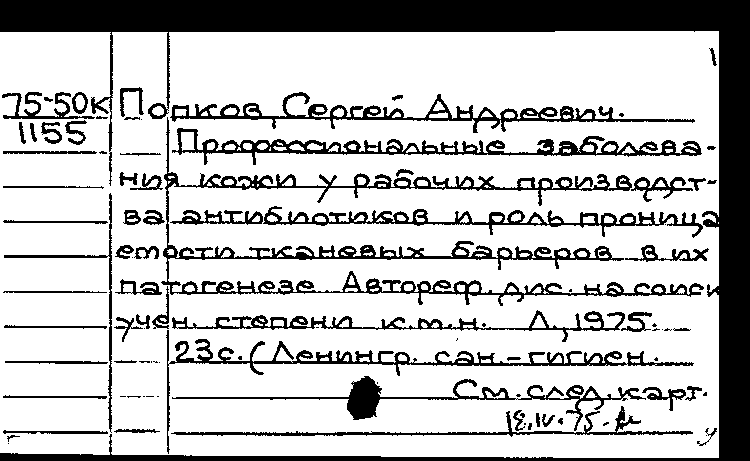 1
75-50к Попков, Сергей Андреевич.
1155
Профессиональные заболева-
ния кожи у рабочих производст-
ва антибиотиков и роль проница
емости тканевых барьеров в их
патогенезе Автореф. дис. на соиск
учен. степени к.м.н. Л., 1975.
23 с. (Ленингр. сан.-гигиен.
См. след. карт.
у